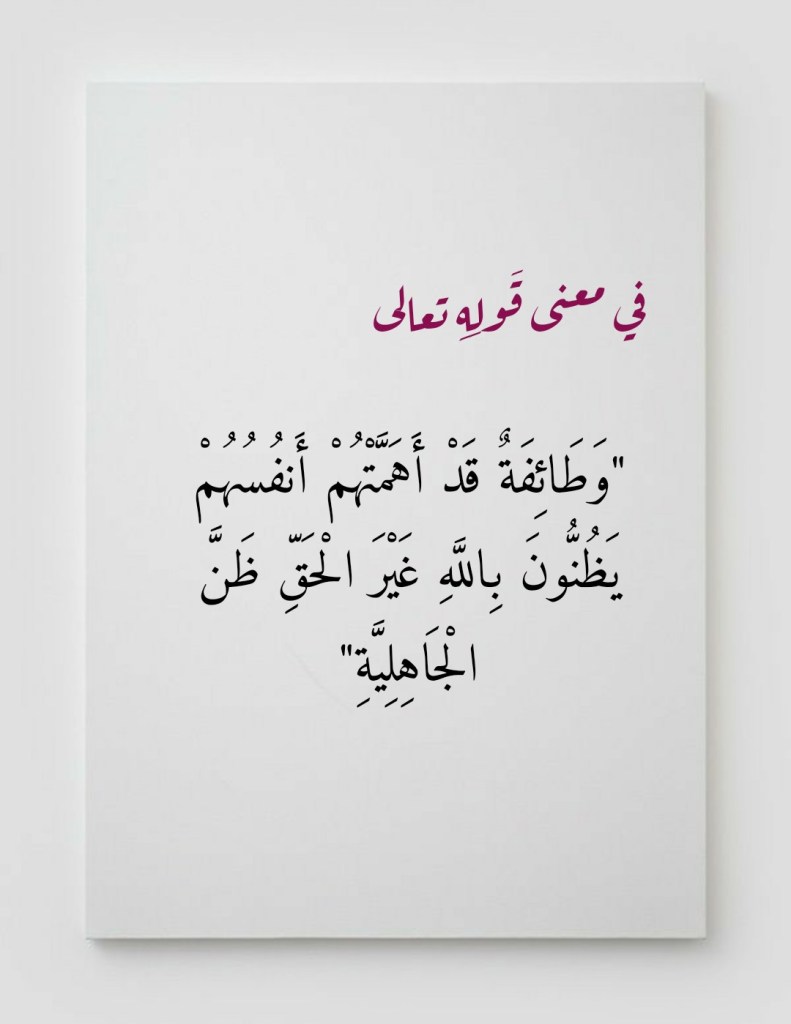 في معنى قَولِهِ تعالى
"وَطَائِفَةٌ قَدْ أَهَمَّتْهُمْ أَنفُسُهُمْ
يَظُنُّونَ بِاللَّهِ غَيْرَ الْحَقِّ ظَنَّ
الْجَاهِلِيَّةِ"